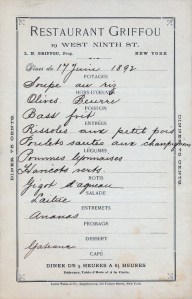 RESTAURANT GRIFFOU
19 WEST NINTH ST.
L. M. GRIFFOU, Prop. NEW YORK
Diner du 17 Juin 1892
POTAGES
Soupe au riz
HORS-D'ŒUVRE
Olives. Beurre
POISSON
Bass frit
ENTRÉES
Rissoles aux petit pois
Poulets sautés aux champignons
LÉGUMES
Pommes lyonnaises
Haricots verts.
ROTIS
Gigot d'agneau
SALADE
Laitue
ENTREMETS
Ananas
FROMAGE
DESSERT
CAFÉ
DINER DE 5 HEURES A 8½ HEURES
DINER 75 CENTS
DINER 75 CENTS